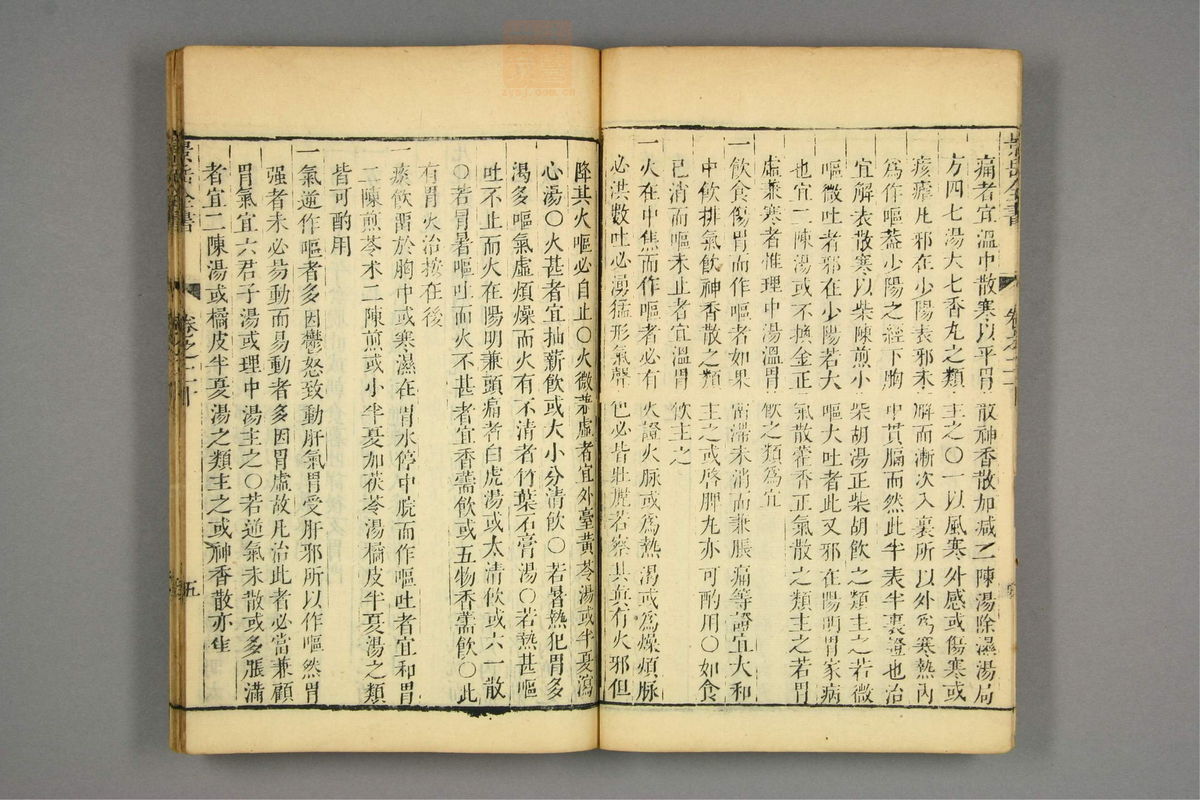 痛者宜溫中散寒以平胃散神香散加減二陳湯除濕湯局
方四七湯大七香丸之類主之〇一以風寒外感或傷寒或
痎瘧凡邪在少陽表邪未解而漸次入裏所以外為寒熱內
為作嘔蓋少陽之經下胸中貫膈而然此半表半裏證也治
宜解表散寒以柴陳煎小柴胡湯正柴胡飲之類主之若微
嘔微吐者邪在少陽若大嘔大吐者此又邪在陽明胃家病
也宜二陳湯或不換金正氣散藿香正氣散之類主之若胃
虛兼寒者惟理中湯溫胃飲之類為宜
一飲食傷胃而作嘔者如果留滯未消而兼脹痛等證宜大和
中飲排氣飲神香散之類主之或啓脾丸亦可酌用〇如食
已消而嘔未止者宜溫胃飲主之
一火在中焦而作嘔者必有火證火脉或為熱渴或為燥煩脉
必洪數吐必湧猛形氣聲色必皆壯麗若察其真有火邪但
降其火嘔必自止〇火微兼虛者宜外臺黃芩湯或半夏瀉
心湯〇火甚者宜抽薪飲或大小分清飲〇若暑熱犯胃多
渴多嘔氣虛煩燥而火有不清者竹葉石膏湯〇若熱甚嘔
吐不止而火在陽明兼頭痛者白虎湯或太清飲或六一散
〇若冒暑嘔吐而火不甚者宜香薷飲或五物香薷飲〇此
有胃火治按在後
一痰飲留於胸中或寒濕在胃水停中脘而作嘔吐者宜和胃
二陳煎苓朮二陳煎或小半夏加茯苓湯橘皮半夏湯之類
皆可酌用
一氣逆作嘔者多因鬱怒致動肝氣胃受肝邪所以作嘔然胃
强者未必易動而易動者多因胃虛故凡治此者必當兼顧
胃氣宜六君子湯或理中湯主之〇若逆氣未散或多脹滿
者宜二陳湯或橘皮半夏湯之類主之或神香散亦佳
景岳全書
卷之二十
五
zysj.com.cn